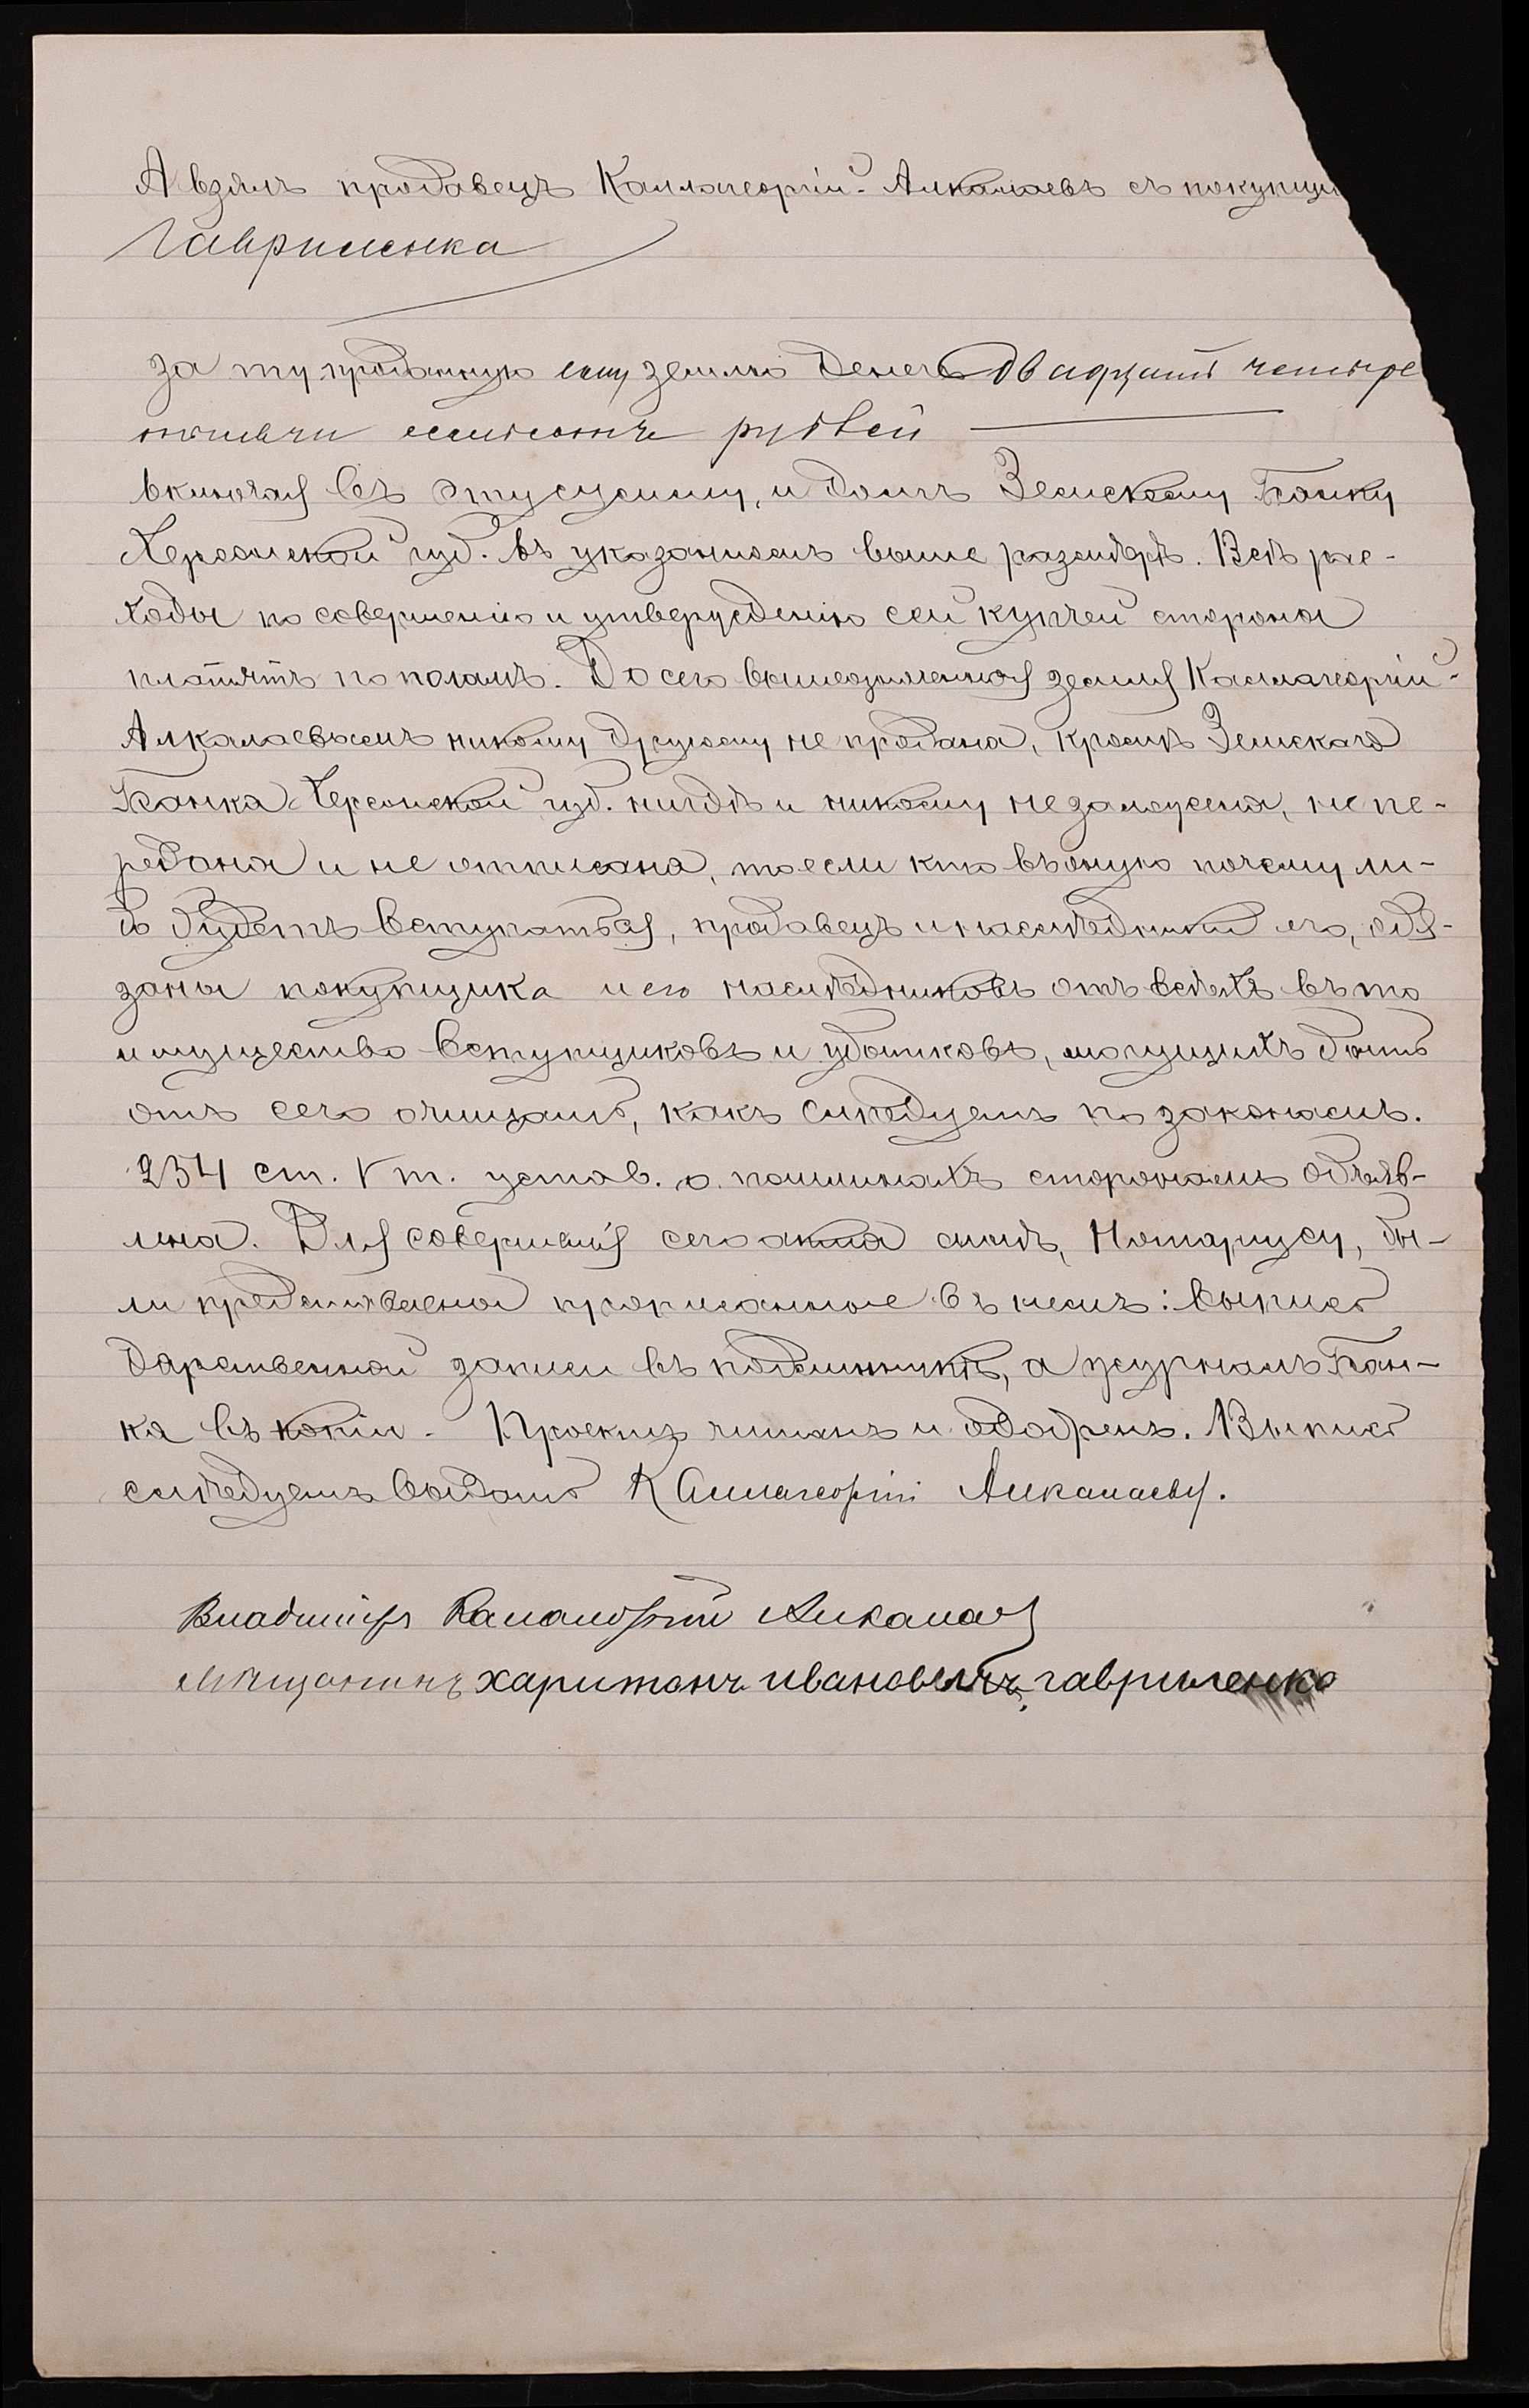 А взялъ продавецъ Каллагеоргій-Алкалаевъ съ покупщи
Гавриленка
за ту проданную ему землю денегъ двадцать четыре
тысячи семьсотъ рублей
включая въ эту сумму, и долгъ Земскому Банку
Херсонской губ. въ указанномъ выше размѣрѣ. Всѣ рас-
ходы по совершенію и утвержденію сей купчей стороны
платятъ по поламъ. До сего вышеозначенная земля Каллагеоргій-
Алкалаевымъ никому другому не продана, кромѣ Земскаго
Банка Херсонской губ. нигдѣ и никому не заложена, не пе-
редана и не отписана, то если кто въ оную почему ли-
бо будетъ вступаться, продавецъ и наслѣдники его, обя-
заны покупщика и его наслѣдниковъ отъ всѣхъ въ то
имущество вступщиковъ и убытковъ, могущихъ быть
отъ сего очищать, какъ слѣдуетъ по законамъ.
254 ст. V т. устав. о пошлинахъ сторонамъ объяв-
лена. Для совершенія сего акта мнѣ, Нотаріусу, бы-
ли представлены прописанные въ немъ: выпись
дарственной записи въ подлинникѣ, а журналъ Бан-
ка въ копіи. Проектъ читанъ и одобренъ. Выпись
слѣдуетъ выдать Каллагеоргій Алкалаеву.
Владиміръ Калагеоргій Алкалаевъ
мѣщанинъ харитонъ ивановичъ гавриленко